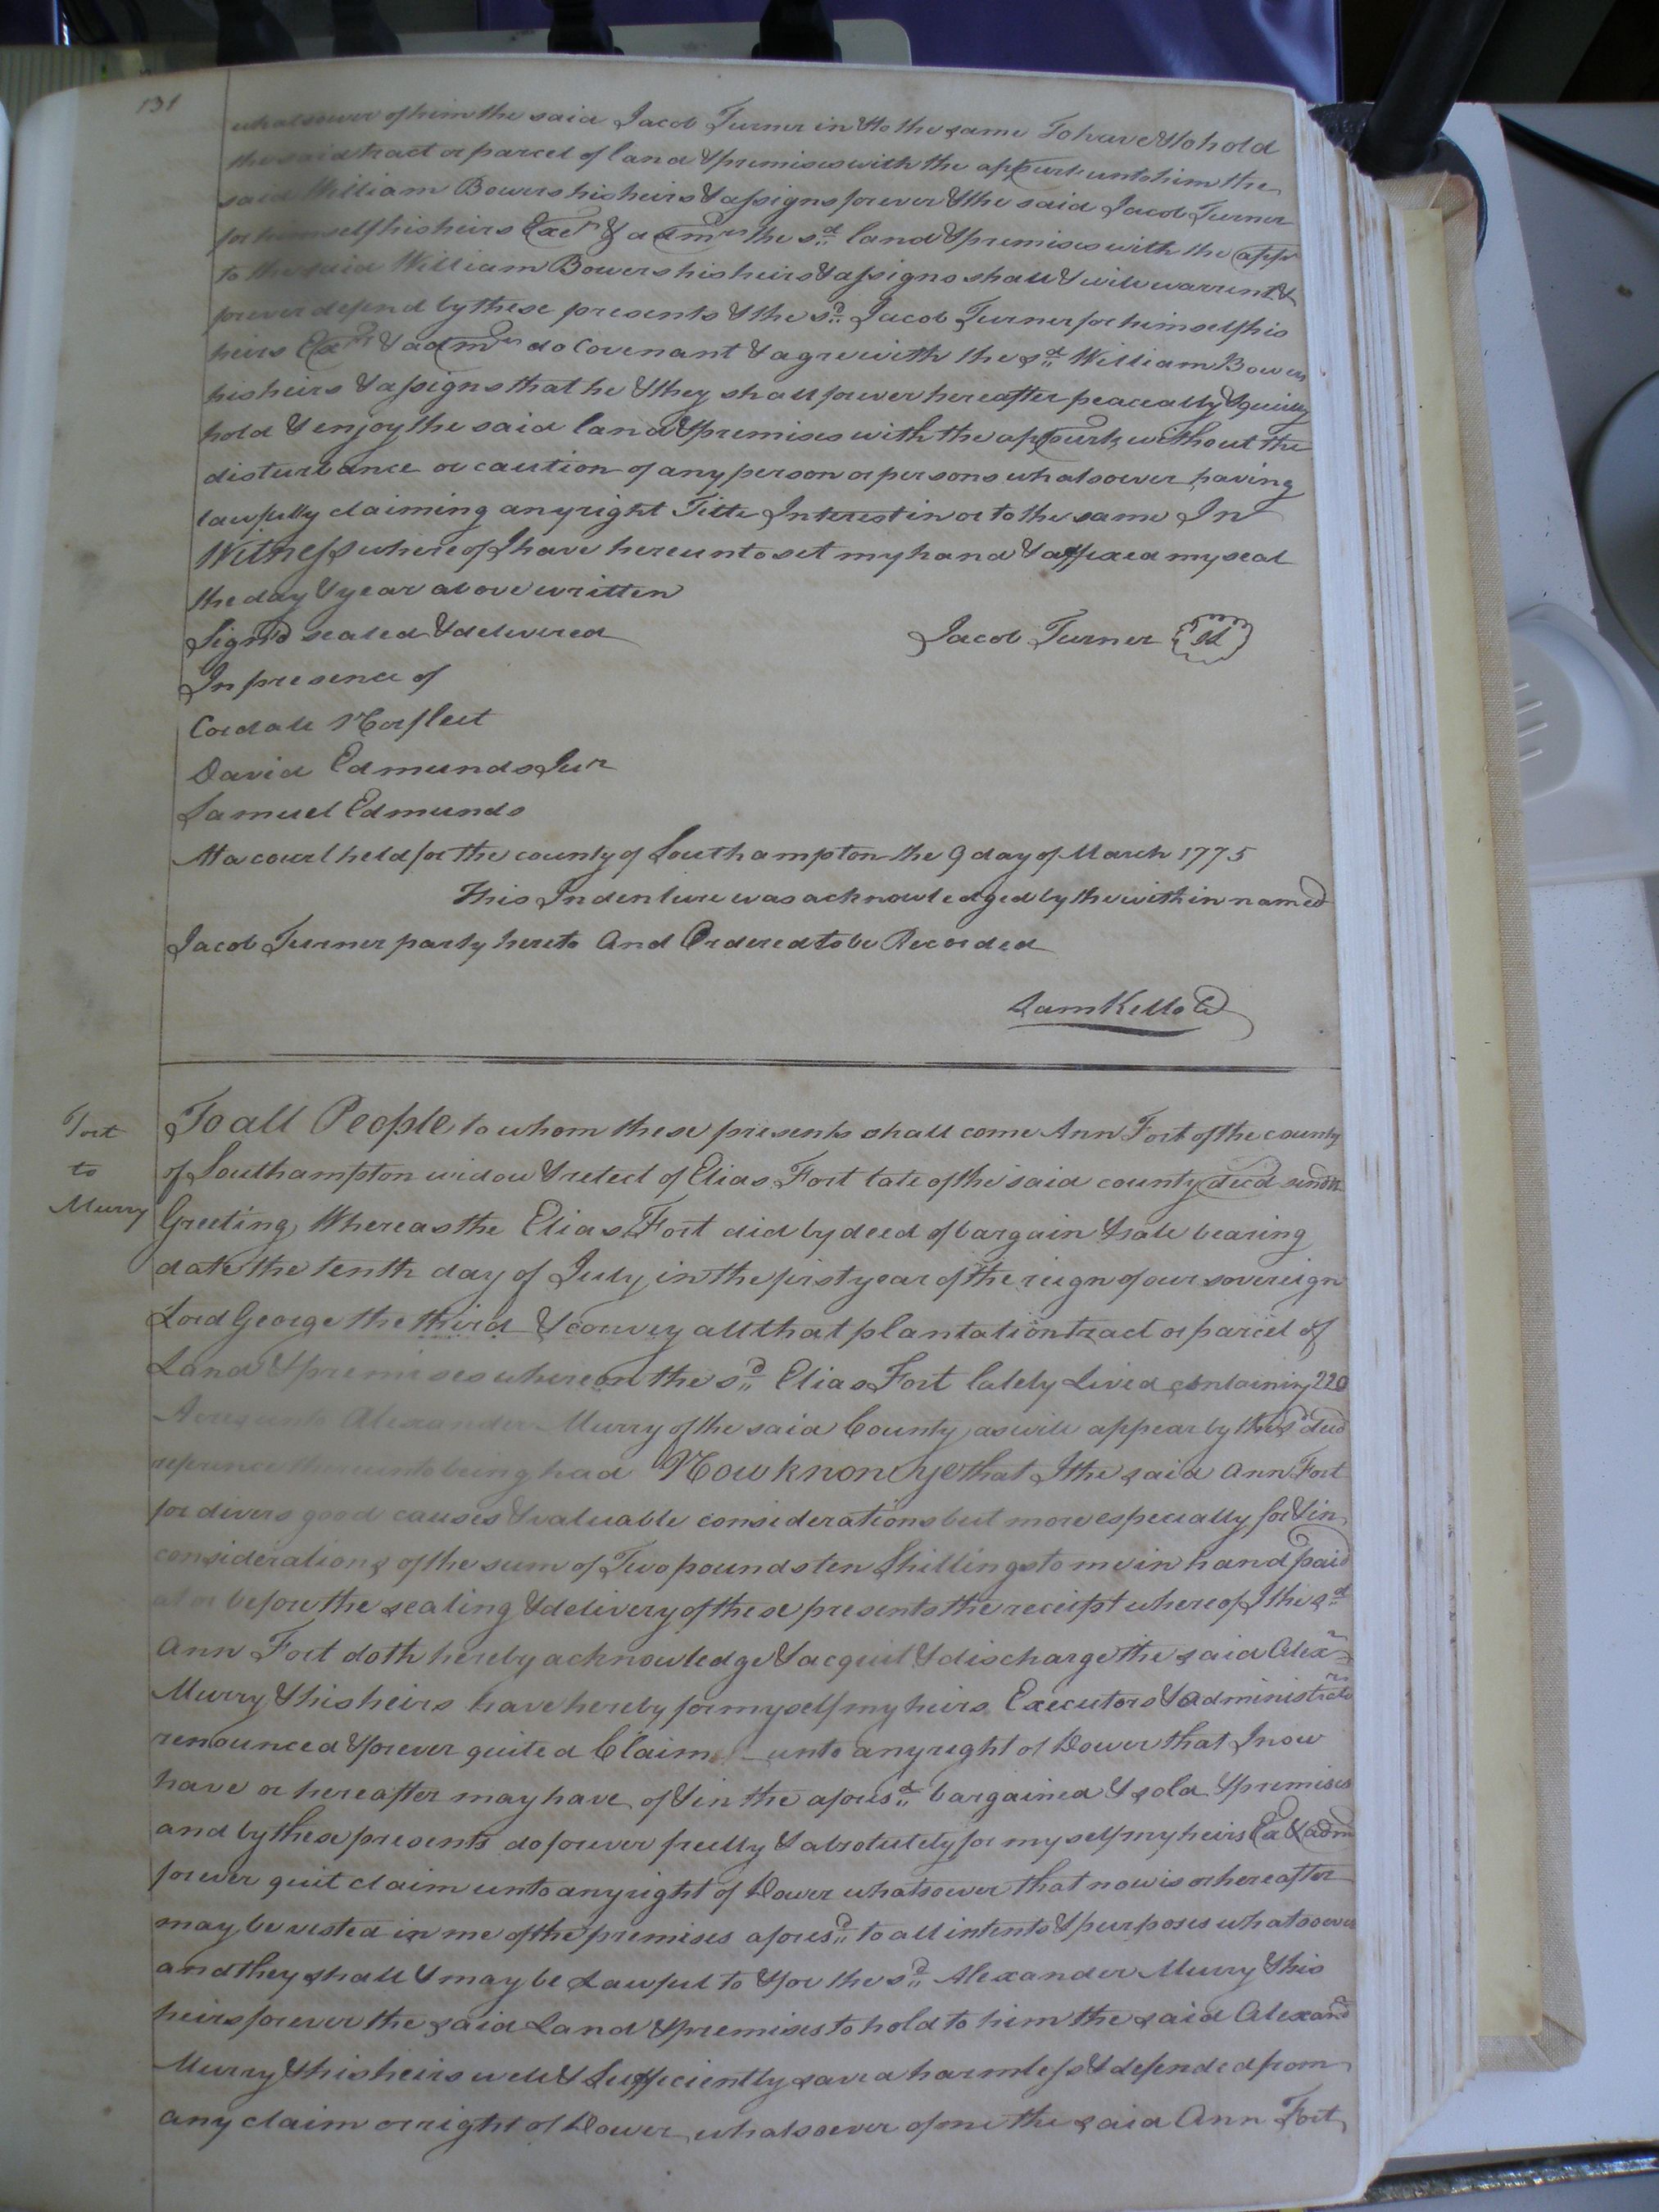 131
whatsoever of him the said Jacob Turner in & to the same To have & to hold
the said tract or parcel of land & premises with the appurts unto him the
said William Bowers his heirs & assigns forever & the said Jacob Turner
for himself his heirs Exrs & admrs the sd land & premises with the appr
to the said William Bowers his heirs & assigns shall & will warrent &
forever defend by these presents & the sd Jacob Turner for himself his
heirs Exrs & admrs do Covenant & agree with the sd William Bowers
his heirs & assigns that he & they shall forever hereafter peaceably & quietly
hold & enjoy the said land & premises with the appurts without the
disturbance or caution of any person or persons whatsoever having
lawfully claiming any right Title Interest in or to the same In
Witness whereof I have hereunto set my hand & affixed my seal
the day & year above written
Sign'd sealed & delivered Jacob Turner
In presence of
Cordall Norfleet
David Edmunds Jur
Samuel Edmunds
At a court held for the county of Southampton the 9 day of March 1775
This Indenture was acknowledged by the within named
Jacob Turner party hereto And Ordered to be Recorded
Sam Kello
Fort
to
Murry
To all People to whom these presents shall come Ann Fort of the county
of Southampton widow & relect of Elias Fort late of the said county decd sendth
Greeting Whereas the Elias Fort did by deed of bargain & sale bearing
date the tenth day of July in the first year of the reign of our sovereign
Lord George the third & convey all that plantation tract or parcel of
Land & premises whereon the sd Elias Fort lately Lived containing 220
Acres unto Alexander Murry of the said County as will appear by the sd deed
referince thereunto being had Now know ye that I the said Ann Fort
for divers good causes & valuable considerations but more especially for & in
considerations of the sum of Two pounds ten Shillings to me in hand paid
at or before the sealing & delivery of these presents the receipt whereof I the sd
Ann Fort doth hereby acknowledge & acquit & discharge the said Alexr
Murry & his heirs have hereby for my self my heirs Executors & administrators
renounced & forever quited Claim unto any right of Dower that I now
have or hereafter may have of & in the aforesd bargained & sold & premises
and by these presents do forever freely & absolutely for my self my heirs Ex & adm
forever quit claim unto any right of Dower whatsoever that now is or hereafter
may be vested in me of the premises aforesd to all intents & purposes whatsoever
and they shall & may be Lawful to & for the sd Alexander Murry & his
heirs forever the said Land & premises to hold to him the said Alexand
Murry & his heirs well & Sufficiently saved harmless & defended from
any claim or right of Dower whatsoever of me the said Ann Fort